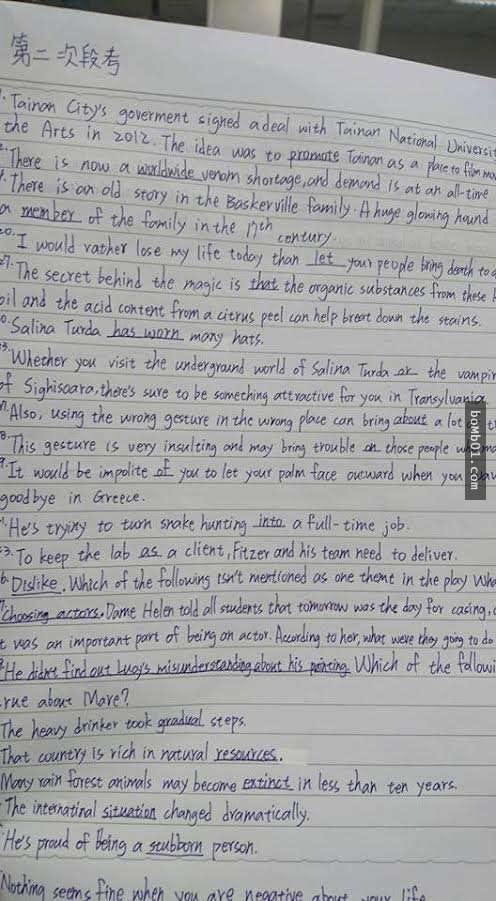 第二次段考
Tainan City's goverment signed a deal with Tainan National Universit
the Arts in 2012. The idea was to promote Tainan as a place to film mo
There is now a worldwide venom shortage, and demand is at an all-time
There is an old story in the Baskerville family. A huge glowing hound
a member of the family in the 17th century.
20. I would rather lose my life today than let your people bring death to a
27. The secret behind the magic is that the organic substances from these
oil and the acid content from a citrus peel can help breat down the stains.
0. Salina Turda has worn many hats.
Whether you visit the underground world of Salina Turda or the vampir
of Sighisoara, there's sure to be something attractive for you in Transylvania
Also, using the wrong gesture in the wrong place can bring about a lot
8. This gesture is very insulting and may bring trouble on those people
9. It would be impolite of you to let your palm face outward when you
goodbye in Greece.
He's trying to turn snake hunting into a full-time job.
3. To keep the lab as a client, Fitzer and his team need to deliver.
6. Dislike. Which of the following isn't mentioned as one theme in the play Wha
Choosing actors. Dame Helen told all students that tomorrow was the day for casing,
t was an important part of being an actor. According to her, what were they going to do
He didn't find out Lucy's misunderstanding about his painting. Which of the followi
rue about More?
The heavy drinker took gradual steps.
That country is rich in natural resources.
Many rain forest animals may become extinct in less than ten years.
The internatinal situation changed dramatically.
He's proud of being a stubborn person.
Nothing seems fine when you are negative about your life
bomb01.com